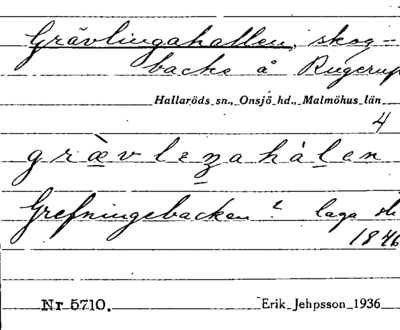 Grävlingahallen, skog-
backe å Rugerup
Hallaröds sn., Onsjö hd., Malmöhus län
4
Grefningebacken? laga sk
1846
Nr 5710. Erik Jehpsson 1936